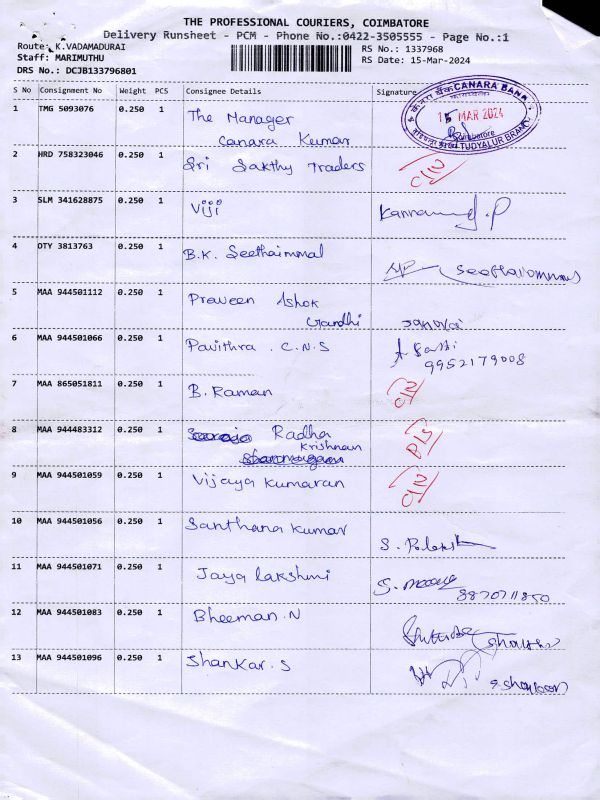 THE PROFESSIONAL COURIERS, COIMBATORE
Delivery Runsheet - PCM - Phone No.:0422-3505555 - Page No.:1
Route: K.VADAMADURAI
RS No.: 1337968
Staff: MARIMUTHU
RS Date: 15-Mar-2024
DRS No.: DCJB133796801
S No Consignment No Weight PCS Consignee Details Signature
CANARA BANK
15 MAR 2024
Coimbatore
TUDYALUR BRANCH
1 TMG 5093076 0.250 1 The Manager
Canara Kumar
2 HRD 758323046 0.250 1 Sri Sakthy Traders
3 SLM 341628875 0.250 1 Viji
4 OTY 3813763 0.250 1 B.K. Seethaimmal
5 MAA 944501112 0.250 1 Praveen Ashok
Gandhi
6 MAA 944501066 0.250 1 Pavithra . C.N.S
9952179008
7 MAA 865051811 0.250 1 B. Raman
8 MAA 944483312 0.250 1 Radha
Krishnan
9 MAA 944501059 0.250 1 Vijaya Kumaran
10 MAA 944501056 0.250 1 Santhana Kumar
11 MAA 944501071 0.250 1 Jaya lakshmi
8870711850
12 MAA 944501083 0.250 1 Bheeman.N
13 MAA 944501096 0.250 1 Shankar.S